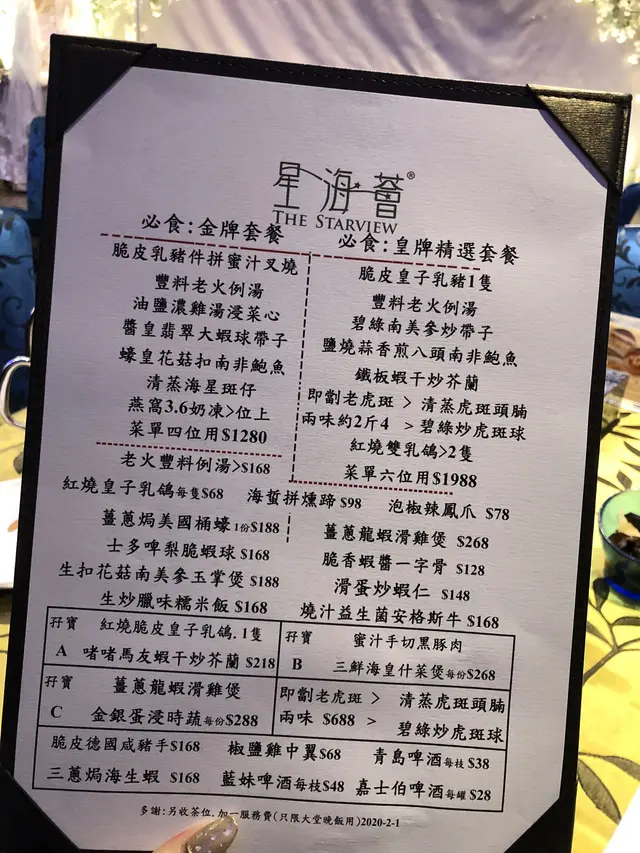 星海薈®
THE STARVIEW
必食:金牌套餐
脆皮乳豬件拼蜜汁叉燒
豐料老火例湯
油鹽濃雞湯浸菜心
醬皇翡翠大蝦球帶子
蠔皇花菇扣南非鮑魚
清蒸海星斑仔
燕窩3.6奶凍>位上
菜單四位用$1280
必食:皇牌精選套餐
脆皮皇子乳豬1隻
豐料老火例湯
碧綠南美參炒帶子
鹽燒蒜香煎八頭南非鮑魚
鐵板蝦干炒芥蘭
即劏老虎斑 > 清蒸虎斑頭腩
兩味約2斤4 > 碧綠炒虎斑球
紅燒雙乳鴿>2隻
菜單六位用$1988
老火豐料例湯>$168
紅燒皇子乳鴿每隻$68 海蜇拼燻蹄$98 泡椒辣鳳爪 $78
薑蔥焗美國桶蠔1份$188 薑蔥龍蝦滑雞煲 $268
士多啤梨脆蝦球 $168 脆香蝦醬一字骨 $128
生扣花菇南美參玉掌煲 $188 滑蛋炒蝦仁 $148
生炒臘味糯米飯 $168 燒汁益生菌安格斯牛 $168
孖寶 A
紅燒脆皮皇子乳鴿.1隻
啫啫馬友蝦干炒芥蘭 $218
孖寶 B
蜜汁手切黑豚肉
三鮮海皇什菜煲每份$268
孖寶 C
薑蔥龍蝦滑雞煲
金銀蛋浸時蔬每份$288
即劏老虎斑 > 清蒸虎斑頭腩
兩味 $688 > 碧綠炒虎斑球
脆皮德國咸豬手$168 椒鹽雞中翼$68 青島啤酒每枝$38
三蔥焗海生蝦 $168 藍妹啤酒每枝$48 嘉士伯啤酒每罐$28
多謝:另收茶位.加一服務費(只限大堂晚飯用)2020-2-1